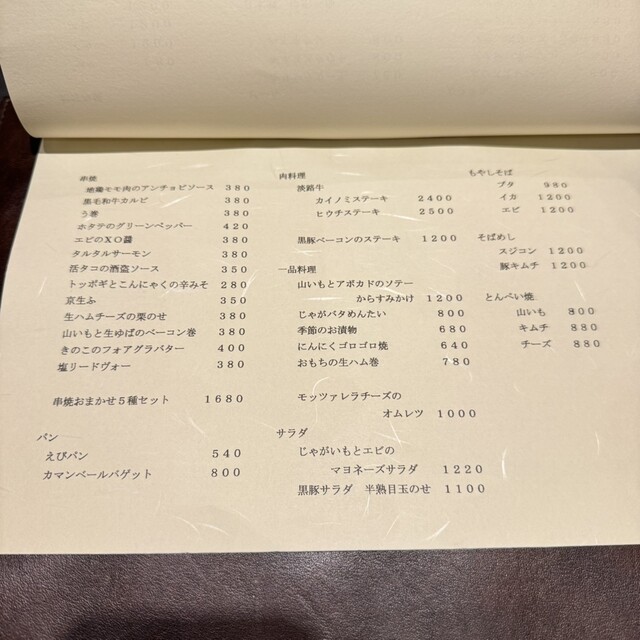 串焼
地鶏モモ肉のアンチョビソース 380
黒毛和牛カルビ 380
う巻 380
ホタテのグリーンペッパー 420
エビのXO醤 380
タルタルサーモン 380
活タコの酒盗ソース 350
トッポギとこんにゃくの辛みそ 280
京生ふ 350
生ハムチーズの栗のせ 380
山いもと生ゆばのベーコン巻 380
きのこのフォアグラバター 400
塩リードヴォー 380
串焼おまかせ5種セット 1680
パン
えびパン 540
カマンベールバゲット 800
肉料理
淡路牛
カイノミステーキ 2400
ヒウチステーキ 2500
黒豚ベーコンのステーキ 1200
一品料理
山いもとアボカドのソテー
からすみかけ 1200
じゃがバタめんたい 800
季節のお漬物 680
にんにくゴロゴロ焼 640
おもちの生ハム巻 780
モッツァレラチーズの
オムレツ 1000
サラダ
じゃがいもとエビの
マヨネーズサラダ 1220
黒豚サラダ 半熟目玉のせ 1100
もやしそば
ブタ 980
イカ 1200
エビ 1200
そばめし
スジコン 1200
豚キムチ 1200
とんぺい焼
山いも 800
キムチ 880
チーズ 880